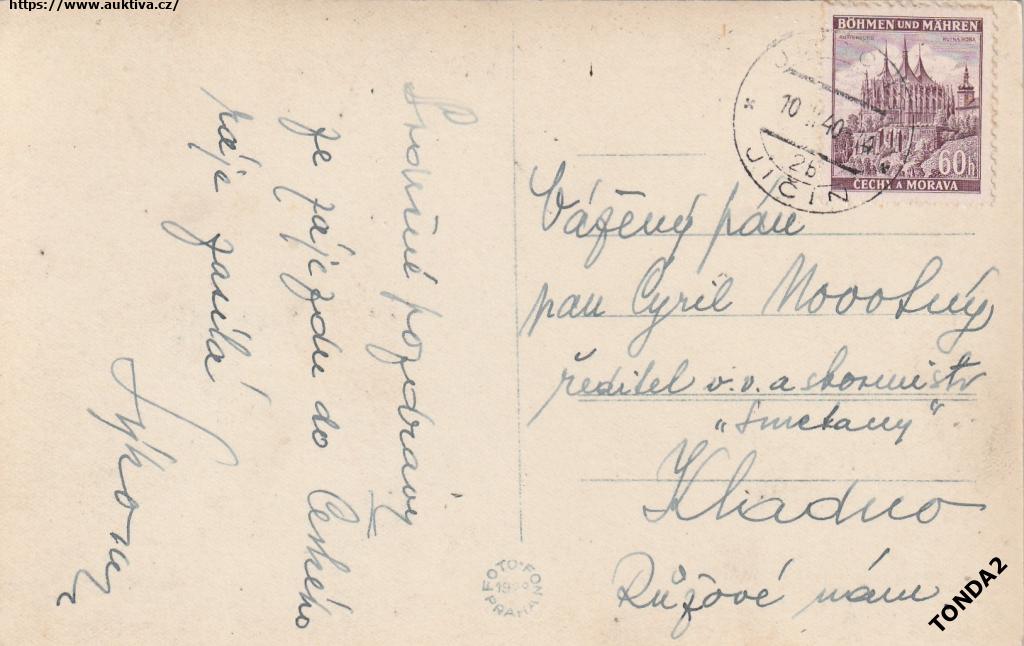 https://www.auktiva.cz/
Srdečné pozdravy
ze zájezdu do Českého
ráje zasílá
Sýkora
BÖHMEN UND MÄHREN
KUTTENBERG KUTNÁ HORA
60h
ČECHY A MORAVA
10 40
2b
JIČÍN
Vážený pán
pan Cyril Novotný
ředitel v.v. a sbormistr
„Smetany“
Kladno
Růžové nám
FOTO-FON
PRAHA
TONDA2